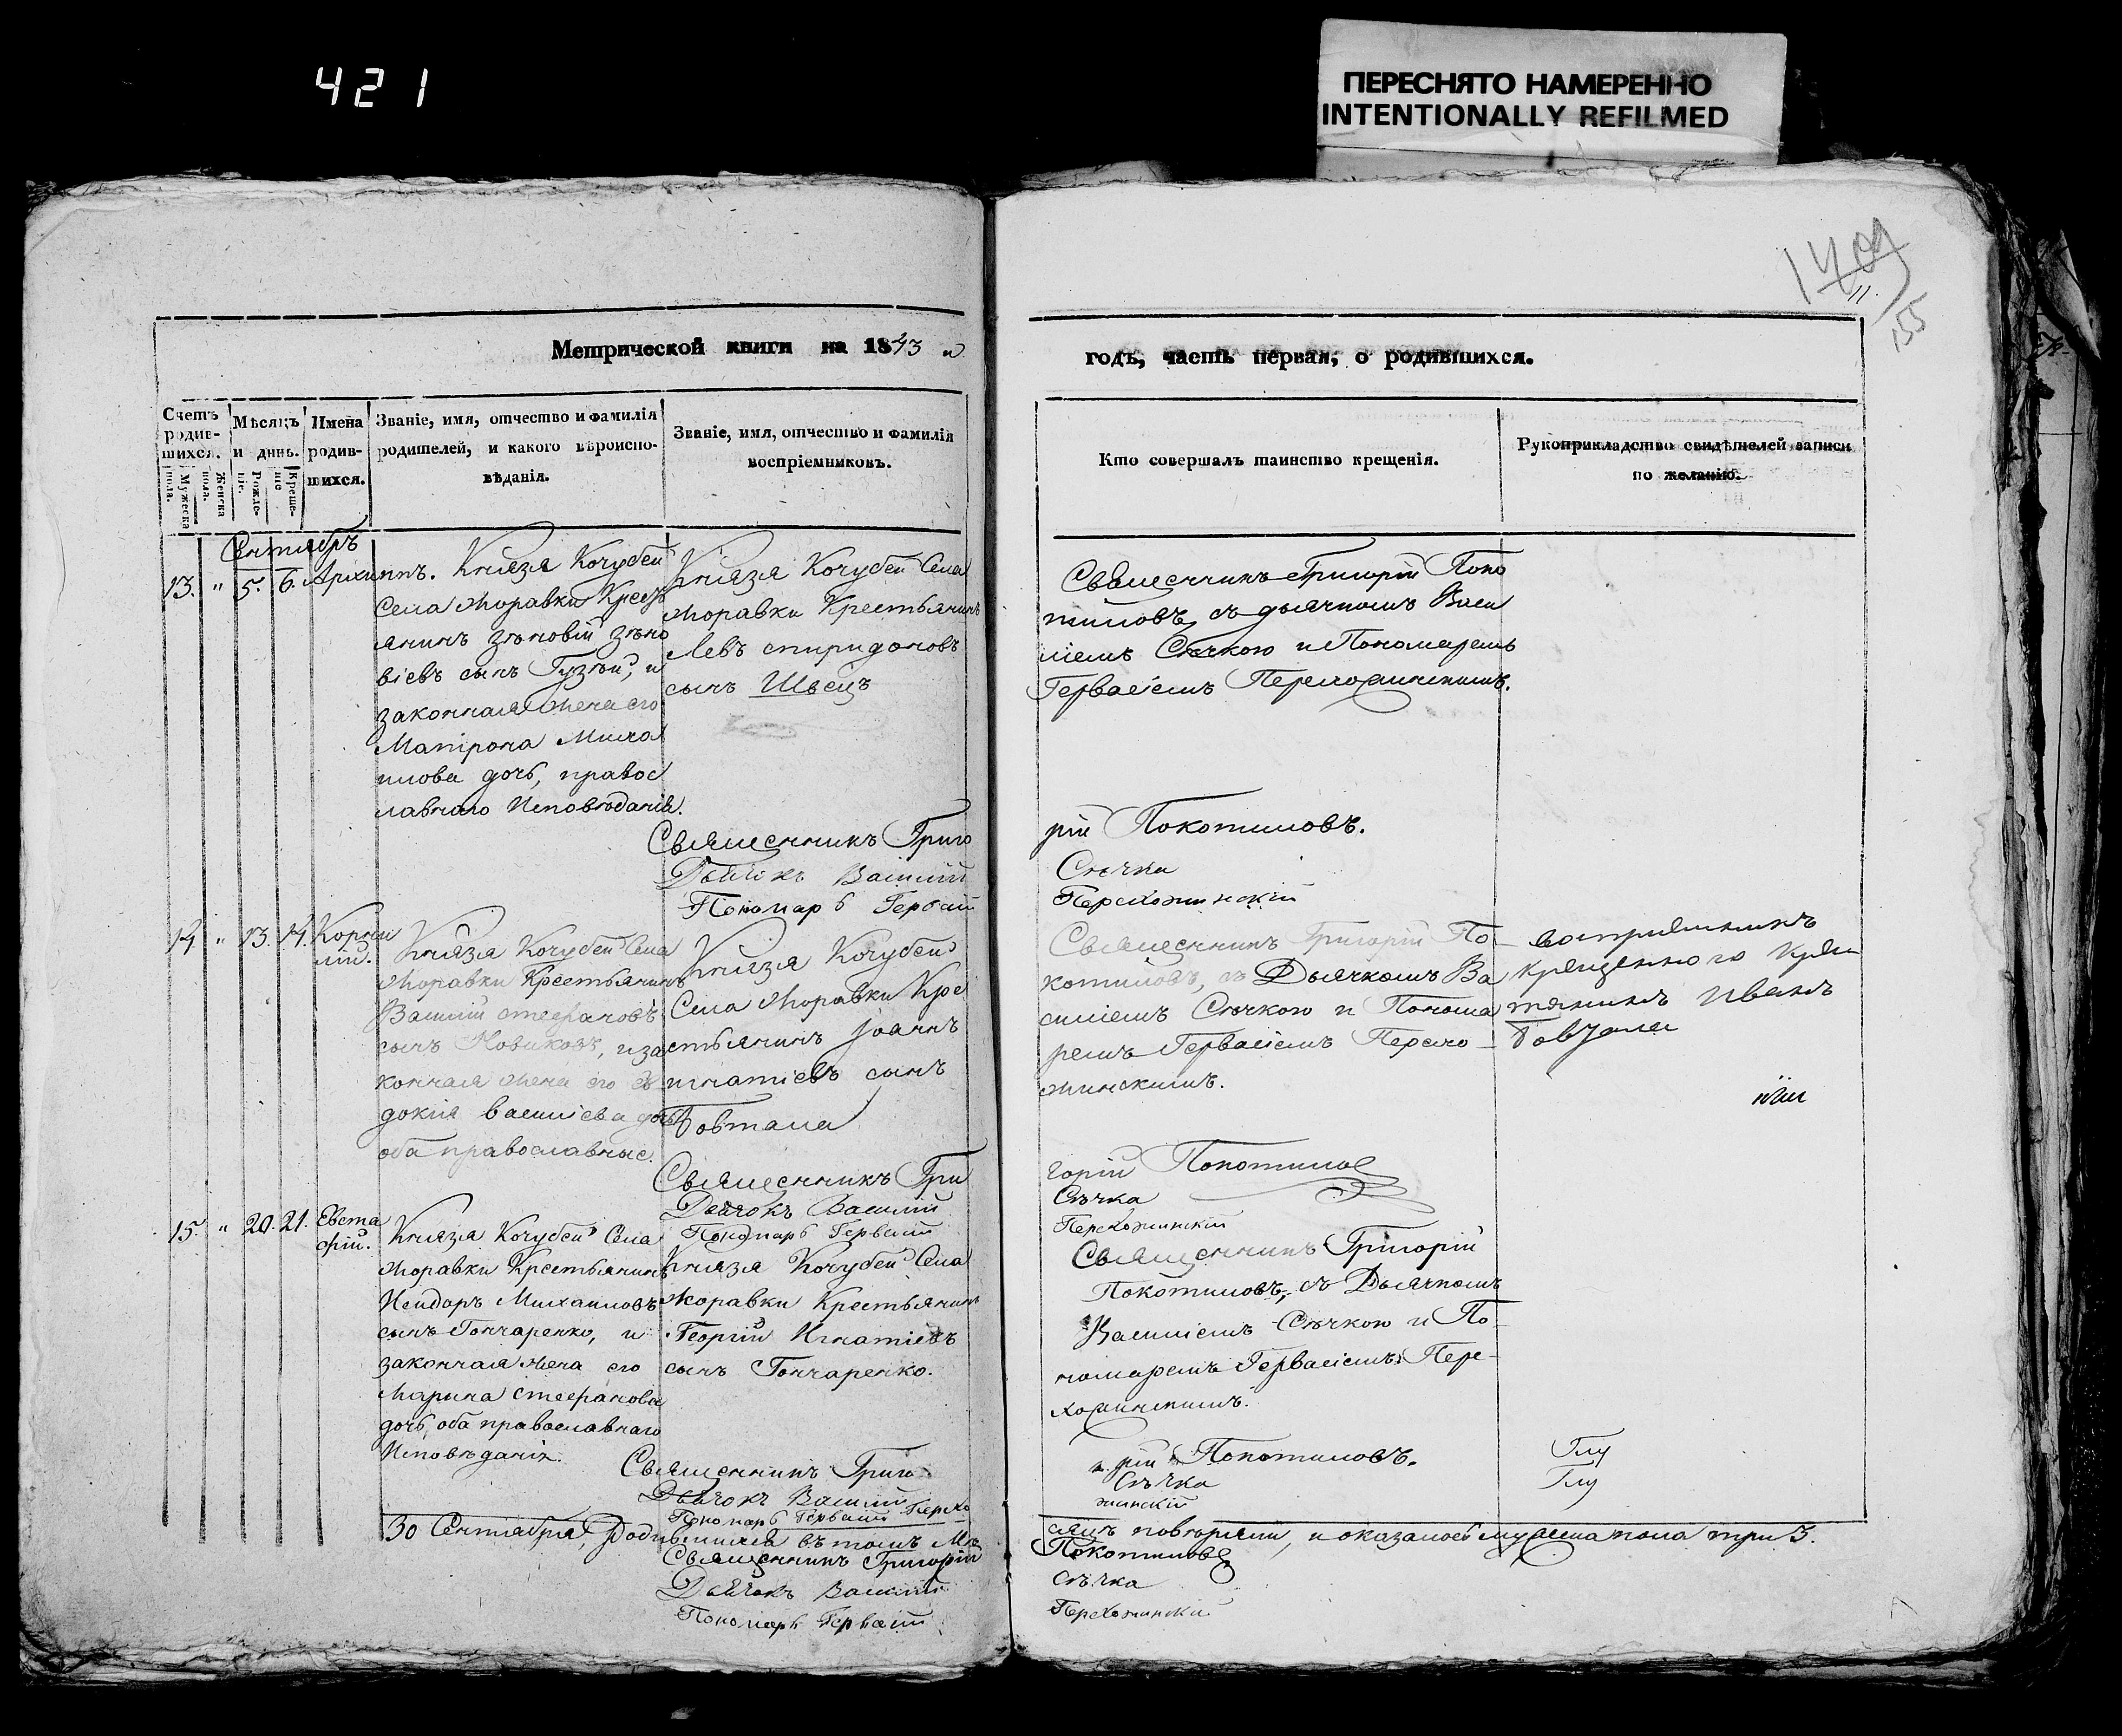 421
ПЕРЕСНЯТО НАМЕРЕННО
INTENTIONALLY REFILMED
155
Метрической книги на 1843 й
годъ, часть первая, о родившихся.
Счетъ родив-шихся.
Мужеска пола.
Женска пола.
Мѣсяцъ и день.
Рожде-ніе.
Креще-ніе
Имена родив-шихся.
Званіе, имя, отчество и фамилія
родителей, и какого вѣроиспо-
вѣданія.
Званіе, имя, отчество и фамилія
воспріемниковъ.
Кто совершалъ таинство крещенія.
Рукоприкладство свидѣтелей записи
по желанію.
Сентябрь
13. " 5. 6. Архиппъ.
Князя Кочубей
Села Журавки Крест
янинъ Зѣновій Зѣно
віевъ сынъ Гузѣй, и
законная жена его
Матрона Михаи
илова дочь, правос
лавнаго Исповѣданія.
Князя Кочубей Села
Журавки Крестьянинъ
Левъ спиридоновъ
сынъ Швецъ
Священникъ Григорій Поко
тиловъ, съ дьячкомъ Васи
ліемъ Сѣчкою и Пономаремъ
Гервасіемъ Перехожинскимъ.
Священникъ Григо
рій Покотиловъ.
Дьячокъ Василій
Сѣчка
Пономарь Гервасій
Перехожинскій
14 " 13. 14. Корни
лій.
Князя Кочубей Села
Журавки Крестьянинъ
Василій стефановъ
сынъ Новиковъ, и за
конная жена его Ев
докія василіева дочь
оба православные.
Князя Кочубей
Села Журавки Кре
стьянинъ Іоаннъ
игнатіевъ сынъ
Товтала
Священникъ Григорій По-
котиловъ, съ Дьячкомъ Ва
силіемъ Сѣчкою и Понома
ремъ Гервасіемъ Перехо-
жинскимъ.
Иванъ
Священникъ Гри
горій Покотиловъ
Дьячокъ Василій
Сѣчка
Пономарь Гервасій
Перехожинскій
15. " 20. 21. Евста
фій.
Князя Кочубей Села
Журавки Крестьянинъ
Исидоръ Михаиловъ
сынъ Гончаренко, и
законная жена его
Марина стефанова
дочь, оба православнаго
Исповѣданія.
Князя Кочубей Села
Журавки Крестьянинъ
Георгій Игнатіевъ
сынъ Гончаренко.
Священникъ Григорій
Покотиловъ, съ Дьячкомъ
Василіемъ Сѣчкою и По-
номаремъ Гервасіемъ Пере-
хожинскимъ.
Священникъ Григо
рій Покотиловъ.
Дьячокъ Василій
Сѣчка
Пономарь Гервасій Перехо
жинскій
30 Сентября, Родившихся въ томъ Мѣ
сяцѣ повѣряли, и оказалось мужеска пола три 3.
Священникъ Григорій
Покотиловъ
Дьячокъ Василій
Сѣчка
Пономарь Гервасій
Перехожинскій